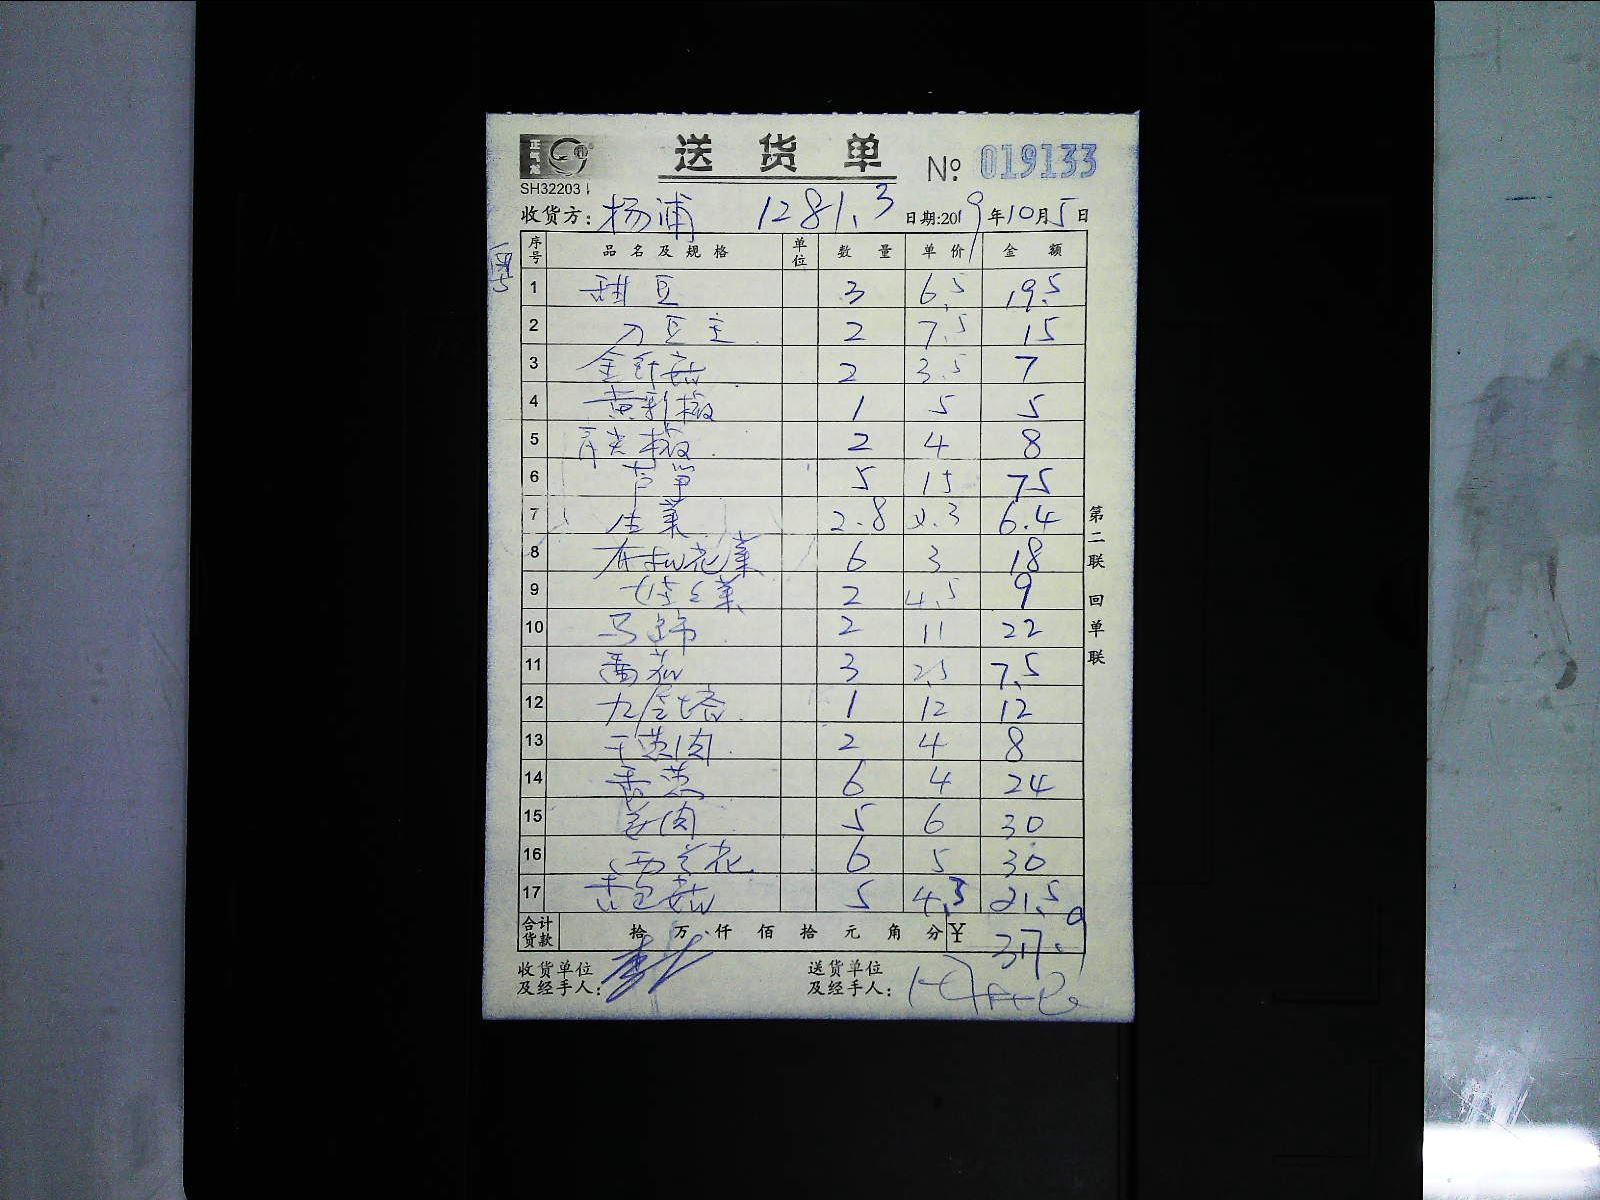 正气龙
SH32203
送货单
№ 019133
收货方: 杨浦 1281.3 日期:2019年10月5日
序号 品名及规格 单位 数量 单价 金额
1 甜豆 3 6.5 19.5
2 刀豆 2 7.5 15
3 金针菇 2 3.5 7
4 黄彩椒 1 5 5
5 尖椒 2 4 8
6 芦笋 5 15 75
7 生菜 2.8 6.4
8 花菜 6 3 18
9 菜 2 4.5 9
10 马蹄 2 11 22
11 番茄 3 2.5 7.5
12 九层塔 1 12 12
13 肉 2 4 8
14 香葱 6 4 24
15 姜肉 5 6 30
16 西兰花 6 5 30
17 杏包菇 5 4.3 21.5
合计货款 拾 万 仟 佰 拾 元 角 分 ¥ 317.9
收货单位及经手人:
送货单位及经手人:
第二联 回单联